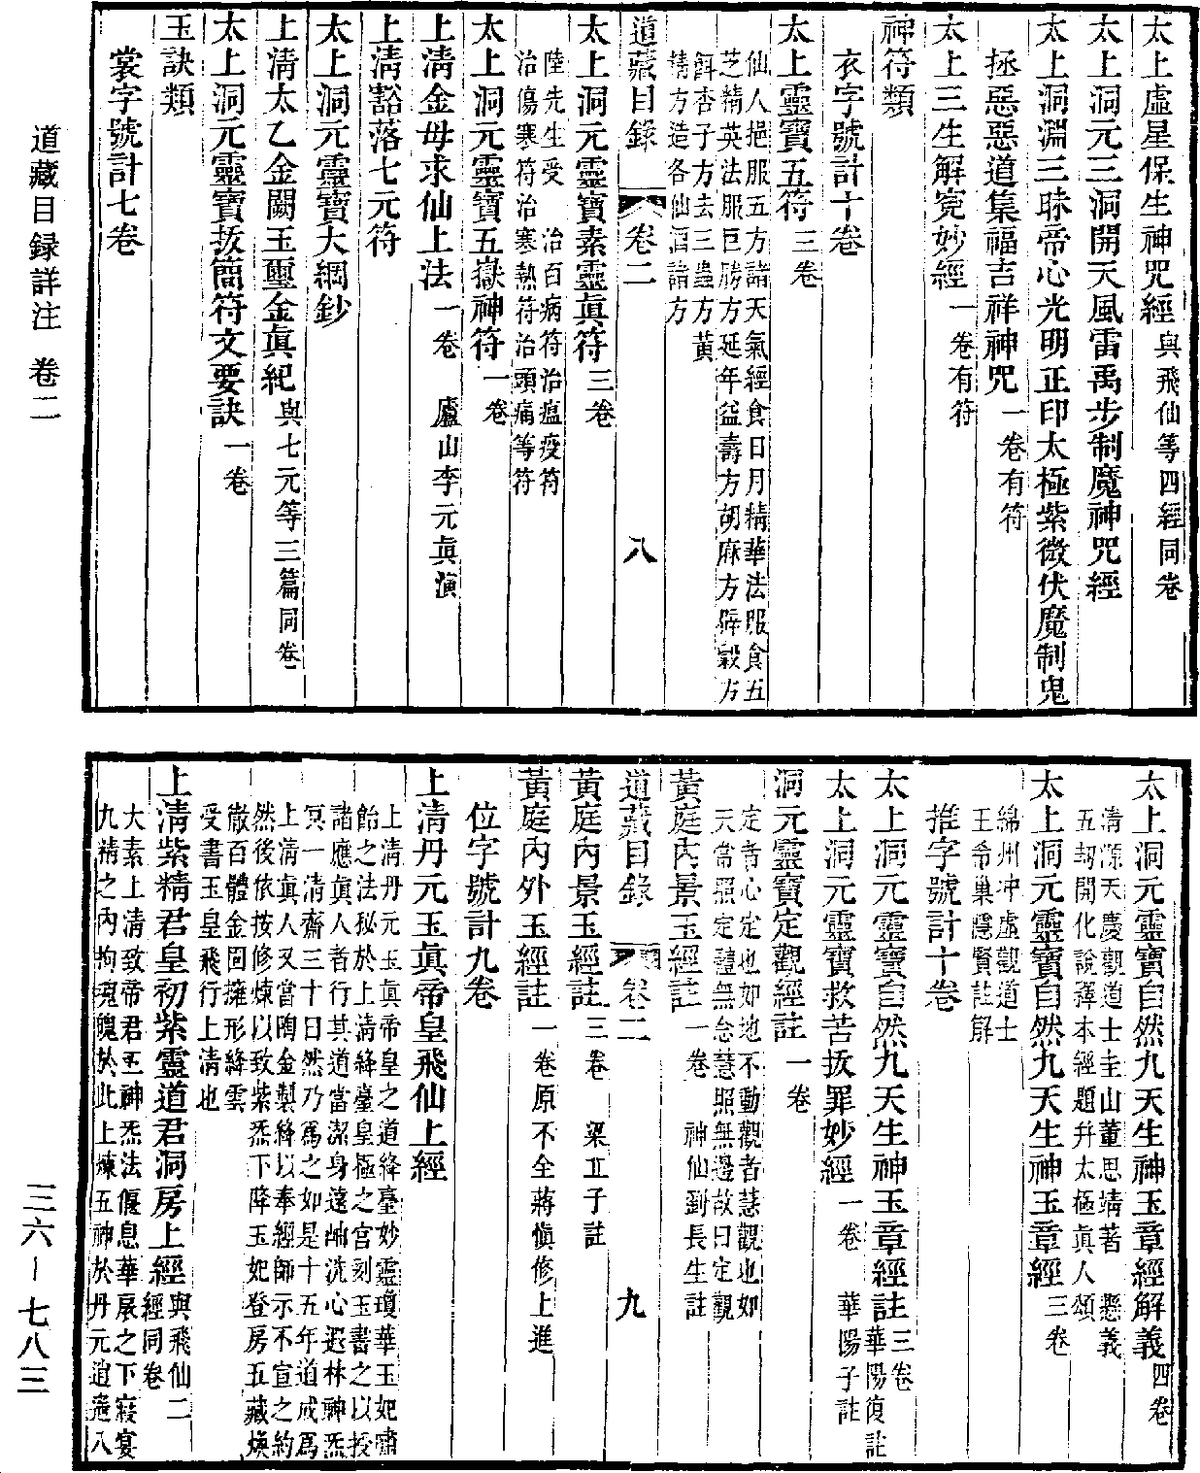 太上虛星保生神咒經與飛仙等四經同卷
太上洞元三洞開天風雷禹步制魔神咒經
太上洞淵三昧帝心光明正印太極紫微伏魔制鬼
拯惡惡道集福吉祥神咒一卷有符
太上三生解寃妙經一卷有符
神符類
衣字號計十卷
太上靈寶五符三卷
仙人挹服五方諸天氣經食日月精華法服食五
芝精英法服巨勝方延年益壽方胡麻方辟穀方
餌杏子方去三蟲方黃
精方造各仙酒諸方
道藏目錄 卷二 八
太上洞元靈寶素靈眞符三卷
陸先生受 治百病符治瘟疫符
治傷寒符治寒熱符治頭痛等符
太上洞元靈寶五嶽神符一卷
上淸金母求仙上法一卷 廬山李元眞演
上淸豁落七元符
太上洞元靈寶大綱鈔
上淸太乙金闕玉璽金眞紀與七元等三篇同卷
太上洞元靈寶投簡符文要訣一卷
玉訣類
裳字號計七卷
道藏目録詳注 卷二
太上洞元靈寶自然九天生神玉章經解義四卷
淸源天慶觀道士圭山董思靖著 懸義
五朝開化說釋本經題幷太極眞人頌
太上洞元靈寶自然九天生神玉章經三卷
綿州冲虛觀道士
王希巢隱賢註解
推字號計十卷
太上洞元靈寶自然九天生神玉章經註三卷華陽復註
太上洞元靈寶救苦拔罪妙經一卷 華陽子註
洞元靈寶定觀經註一卷
定者心定也如地不動觀者慧觀也如
天常照定體無念慧照無邊故曰定觀
黃庭內景玉經註一卷 神仙劉長生註
道藏目錄 卷二 九
黃庭內景玉經註三卷 梁丘子註
黃庭內外玉經註一卷原不全蔣愼修上進
位字號計九卷
上淸丹元玉眞帝皇飛仙上經
上淸丹元玉眞帝皇之道絳臺妙靈瓊華玉妃嘯
飴之法秘於上淸絳臺皇極之宮刻玉書之以授
諸應眞人者行其道當潔身遠岫洗心遐林神炁
冥一淸齋三十日然乃爲之如是十五年道成爲
上淸眞人又當陶金製絳以奉經師示不宣之約
然後依按修煉以致紫炁下降玉妃登房五藏煥
徹百體金固擁形絳雲
受書玉皇飛行上淸也
上淸紫精君皇初紫靈道君洞房上經與飛仙二經同卷
大素上淸致帝君五神炁法偃息華扆之下寢宴
九精之內拘魂魄於此上煉五神於丹元逍遙八
三六－七八三